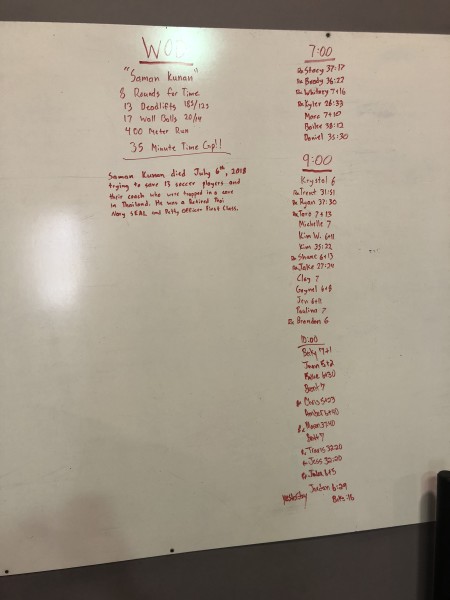 WOD
"Saman Kunan"
8 Rounds for Time
13 Deadlifts 185/125
17 Wall Balls 20/14
400 Meter Run
35 Minute Time Cap!!
Saman Kunan died July 6th, 2018
trying to save 13 soccer players and
their coach who were trapped in a cave
in Thailand. He was a Retired Thai
Navy SEAL and Petty Officer First Class.
7:00
Rx Stacy 37:17
Rx Brady 36:22
Rx Whitney 7+16
Rx Kyler 26:33
Marc 7+10
Bailee 38:12
Daniel 35:30
9:00
Krystal 6
Rx Trent 31:51
Rx Ryan 37:30
Rx Tara 7+13
Michelle 7
Kim W. 6+11
Kim 35:22
Rx Shane 6+13
Rx Jake 27:24
Clay 7
6+8
Jen 6+11
Paulina 7
Rx Brandon 6
10:00
7+1
5+2
6+30
7
Chris 5+23
6+40
33:40
7
Travis 32:20
Jess 32:20
6+3
Jordan 6:29
Yesterday